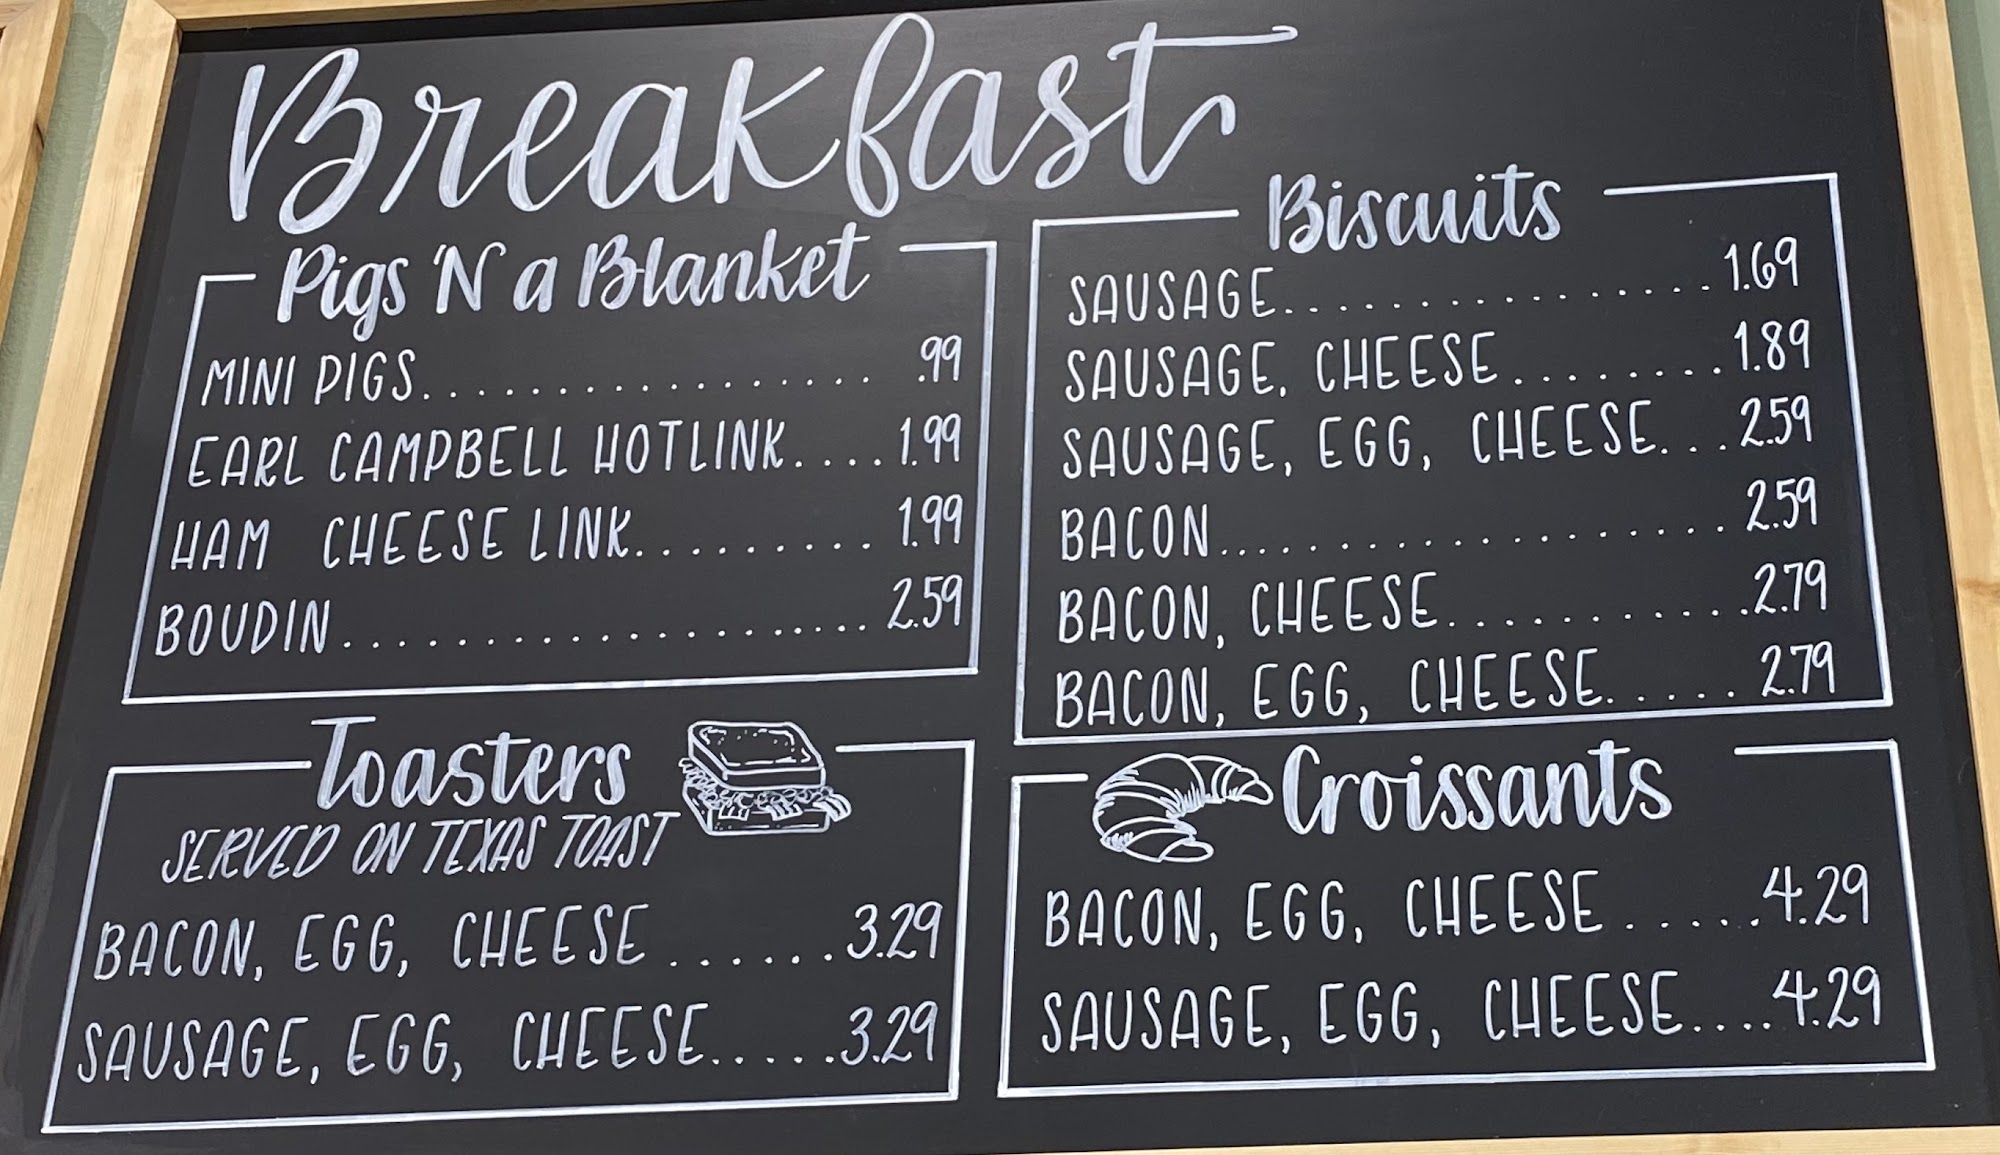 Breakfast
Pigs 'N a Blanket
MINI PIGS................. .99
EARL CAMPBELL HOTLINK....1.99
HAM CHEESE LINK......... 1.99
BOUDIN..................... 2.59
Toasters
SERVED ON TEXAS TOAST
BACON, EGG, CHEESE ......3.29
SAUSAGE, EGG, CHEESE.....3.29
Biscuits
SAUSAGE.................1.69
SAUSAGE, CHEESE........1.89
SAUSAGE, EGG, CHEESE...2.59
BACON................... 2.59
BACON, CHEESE...........2.79
BACON, EGG, CHEESE..... 2.79
Croissants
BACON, EGG, CHEESE .....4.29
SAUSAGE, EGG, CHEESE....4.29